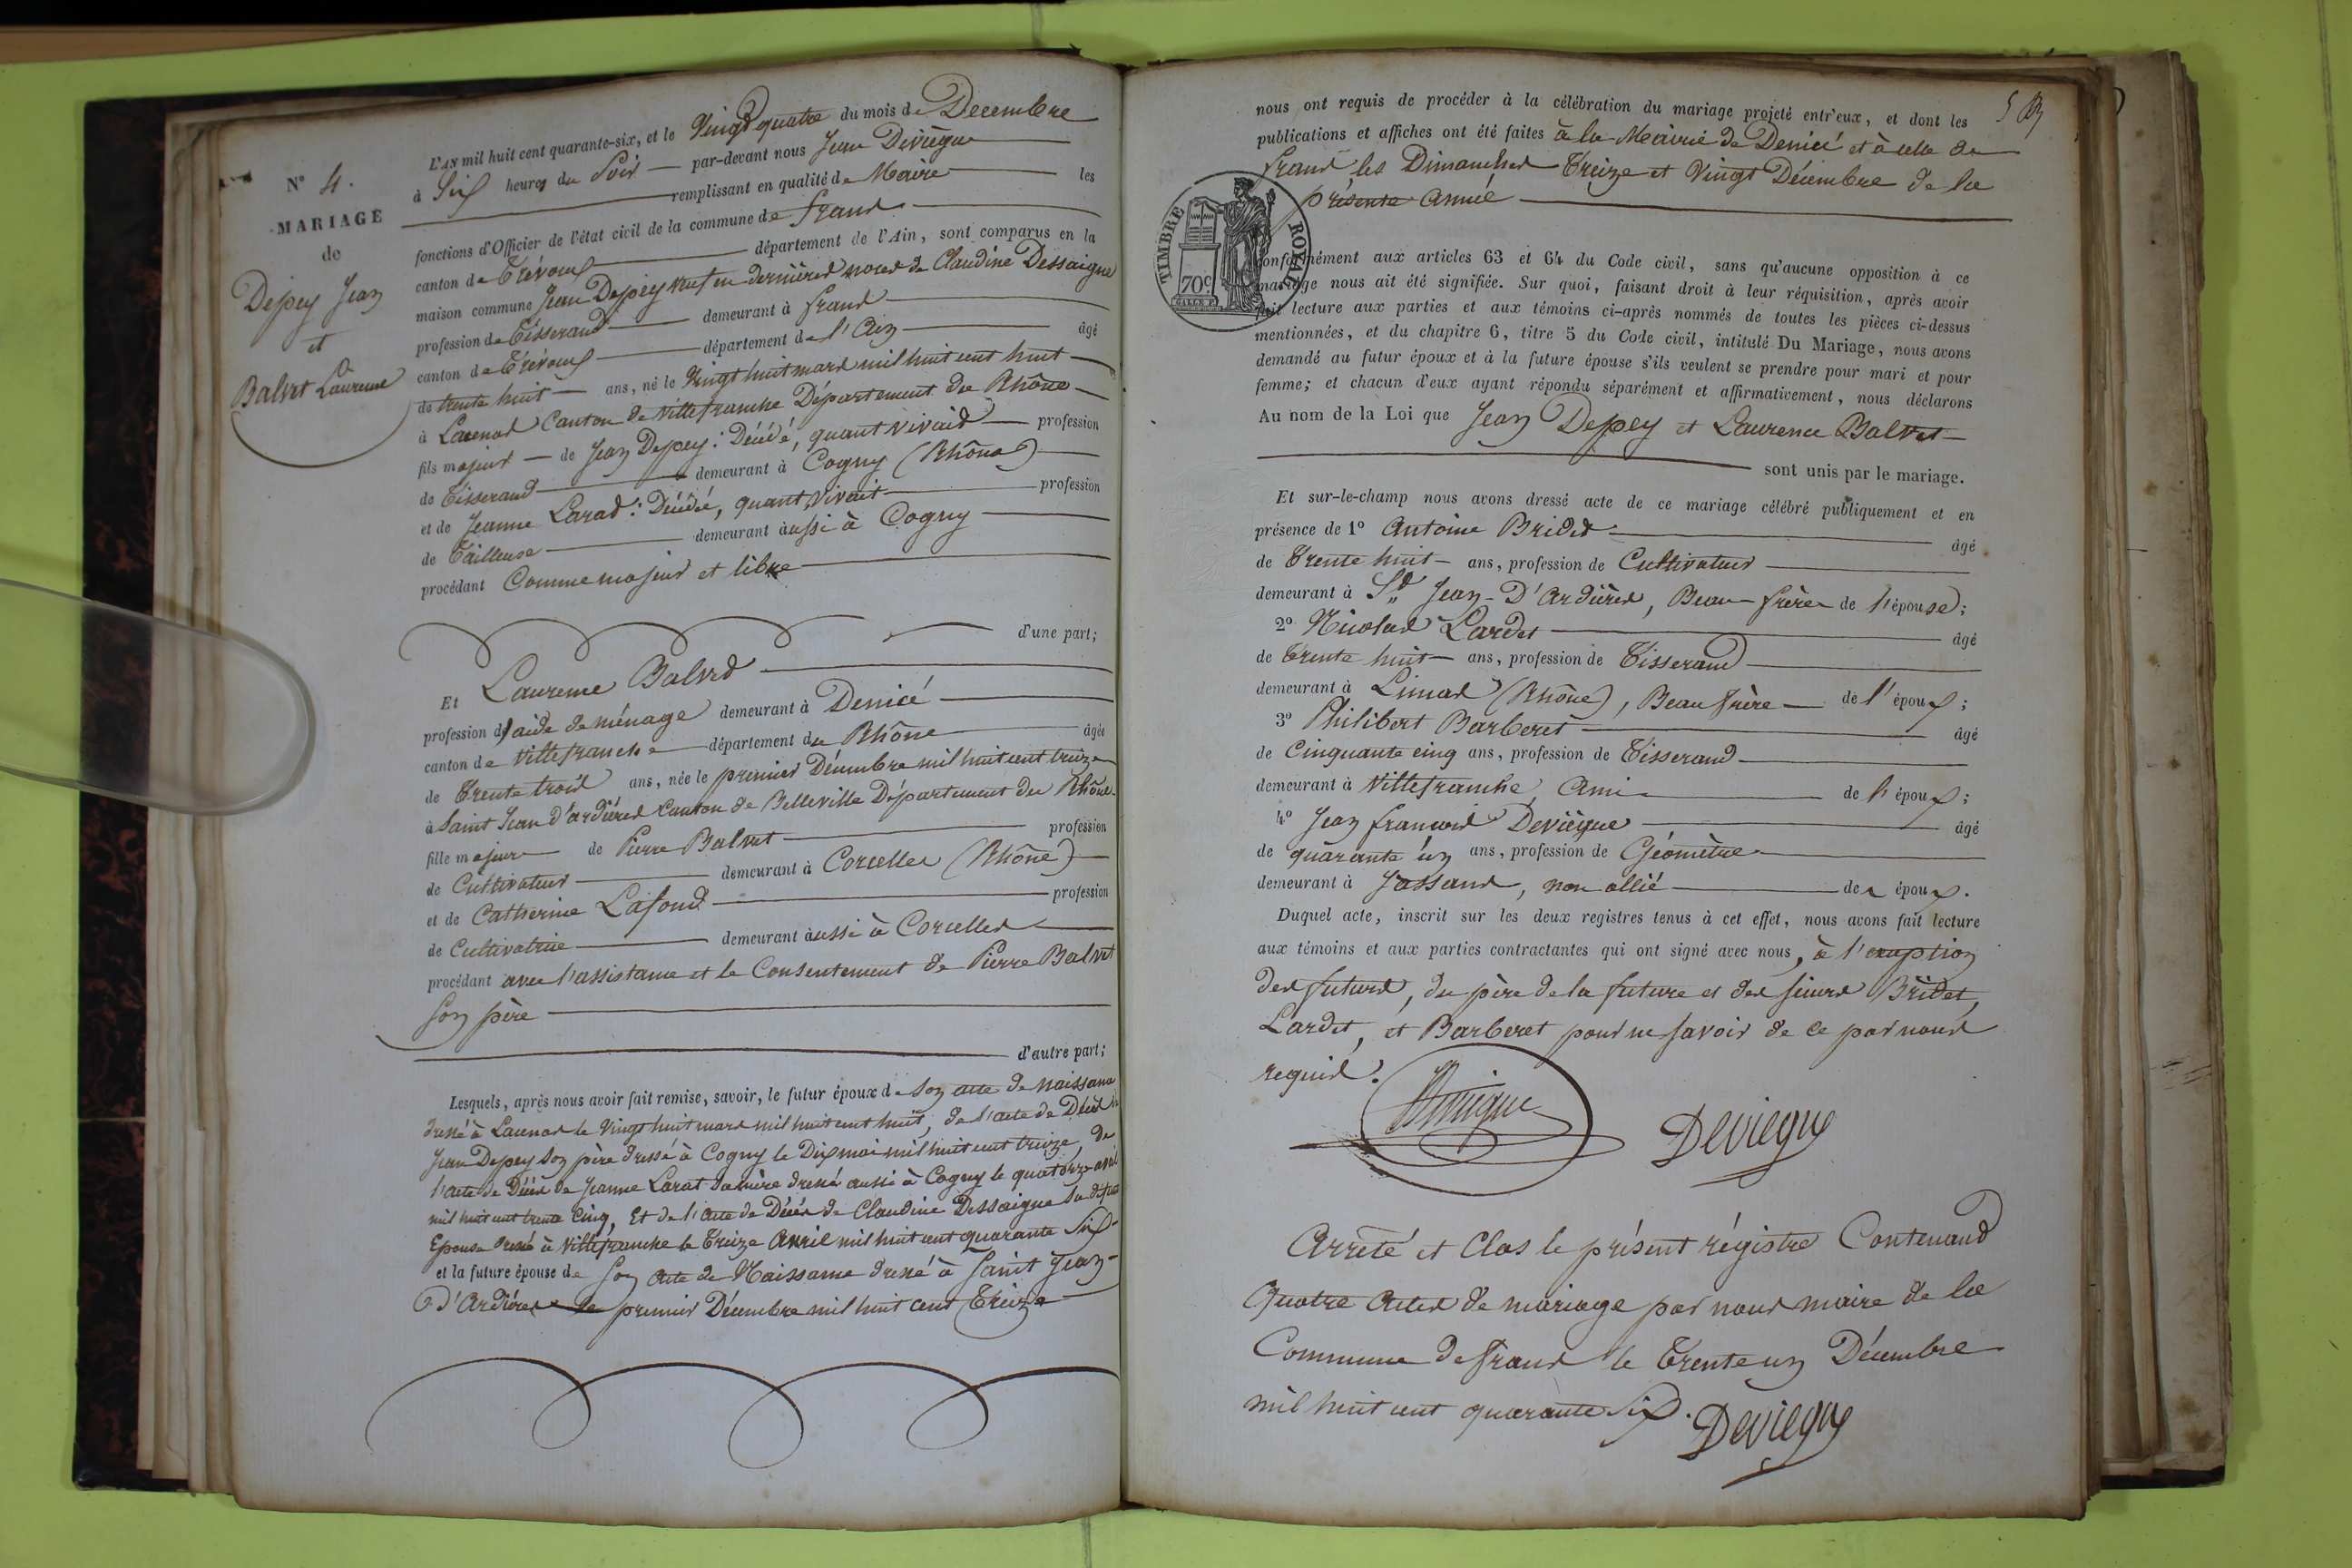 N° 4.
MARIAGE
de
Depey Jean
et
Balvet Laurence
L'AN mil huit cent quarante-six, et le Vingt quatre du mois de Decembre
à Six heures du Soir par-devant nous Jean Deviègue
remplissant en qualité de Maire les
fonctions d'Officier de l'état civil de la commune de frans
canton de Trévoux département de l'Ain, sont comparus en la
maison commune Jean Depey veuf en dernières noces de Claudine Dessaigne
profession de Tisserand demeurant à frans
canton de Trévoux département de l'Ain âgé
de trente huit ans, né le Vingt huit mars mil huit cent huit
à Lacenas Canton de Villefranche Département du Rhône
fils majeur de Jean Depey: Décédé, quant vivait profession
de Tisserand demeurant à Cogny (Rhône)
et de Jeanne Larat: Décédée, quant vivait profession
de Tailleuse demeurant aussi à Cogny
procédant Comme majeur et libre
d'une part;
Et Laurence Balvet
profession d'aide de ménage demeurant à Denicé
canton de Villefranche département du Rhône âgée
de Trente trois ans, née le premier Décembre mil huit cent treize
à Saint Jean d'ardières Canton de Belleville Département du Rhône
fille majeure de Pierre Balvet profession
de Cultivateur demeurant à Corcelles (Rhône)
et de Catherine Lafond profession
de Cultivatrice demeurant aussi à Corcelles
procédant avec l'assistance et le Consentement de Pierre Balvet
son père
d'autre part;
Lesquels, après nous avoir fait remise, savoir, le futur époux de son acte de naissance
dressé à Lacenas le Vingt huit mars mil huit cent huit, de l'acte de Décès de
Jean Depey son père dressé à Cogny le Dix mai mil huit cent treize, de
l'acte de Décès de Jeanne Larat sa mère dressé aussi à Cogny le quatorze avril
mil huit cent trente cinq, Et de l'acte de Décès de Claudine Dessaigne sa défunte
Epouse dressé à Villefranche le Treize Avril mil huit cent quarante Six
et la future épouse de son acte de Naissance dressé à Saint Jean-
d'Ardières le premier Décembre mil huit cent Treize
nous ont requis de procéder à la célébration du mariage projeté entr'eux, et dont les
publications et affiches ont été faites à la Mairie de Denicé et à celle de
frans les Dimanches Treize et Vingt Décembre de la
présente année
TIMBRE ROYAL
70c
conformément aux articles 63 et 64 du Code civil, sans qu'aucune opposition à ce
mariage nous ait été signifiée. Sur quoi, faisant droit à leur réquisition, après avoir
fait lecture aux parties et aux témoins ci-après nommés de toutes les pièces ci-dessus
mentionnées, et du chapitre 6, titre 5 du Code civil, intitulé Du Mariage, nous avons
demandé au futur époux et à la future épouse s'ils veulent se prendre pour mari et pour
femme; et chacun d'eux ayant répondu séparément et affirmativement, nous déclarons
Au nom de la Loi que Jean Depey et Laurence Balvet
sont unis par le mariage.
Et sur-le-champ nous avons dressé acte de ce mariage célébré publiquement et en
présence de 1° Antoine Bridet âgé
de Trente huit ans, profession de Cultivateur
demeurant à St Jean-D'Ardières, Beau-frère de l'épouse;
2° Nicolas Lardet âgé
de Trente huit ans, profession de Tisserand
demeurant à Limas (Rhône), Beau frère de l'époux;
3° Philibert Barberet âgé
de Cinquante cinq ans, profession de Tisserand
demeurant à Villefranche, Ami de l'époux;
4° Jean françois Deviègue âgé
de quarante un ans, profession de Géomètre
demeurant à Jassans, non allié des époux.
Duquel acte, inscrit sur les deux registres tenus à cet effet, nous avons fait lecture
aux témoins et aux parties contractantes qui ont signé avec nous, à l'exception
des futurs, du père de la future et des sieurs Bridet,
Lardet, et Barberet pour ne savoir de ce par nous
requis.
Deviegue
Arrêté et Clos le présent régistre Contenant
Quatre Actes de mariage par nous maire de la
Commune de frans le Trente un Décembre
mil huit cent quarante Six. Deviegue